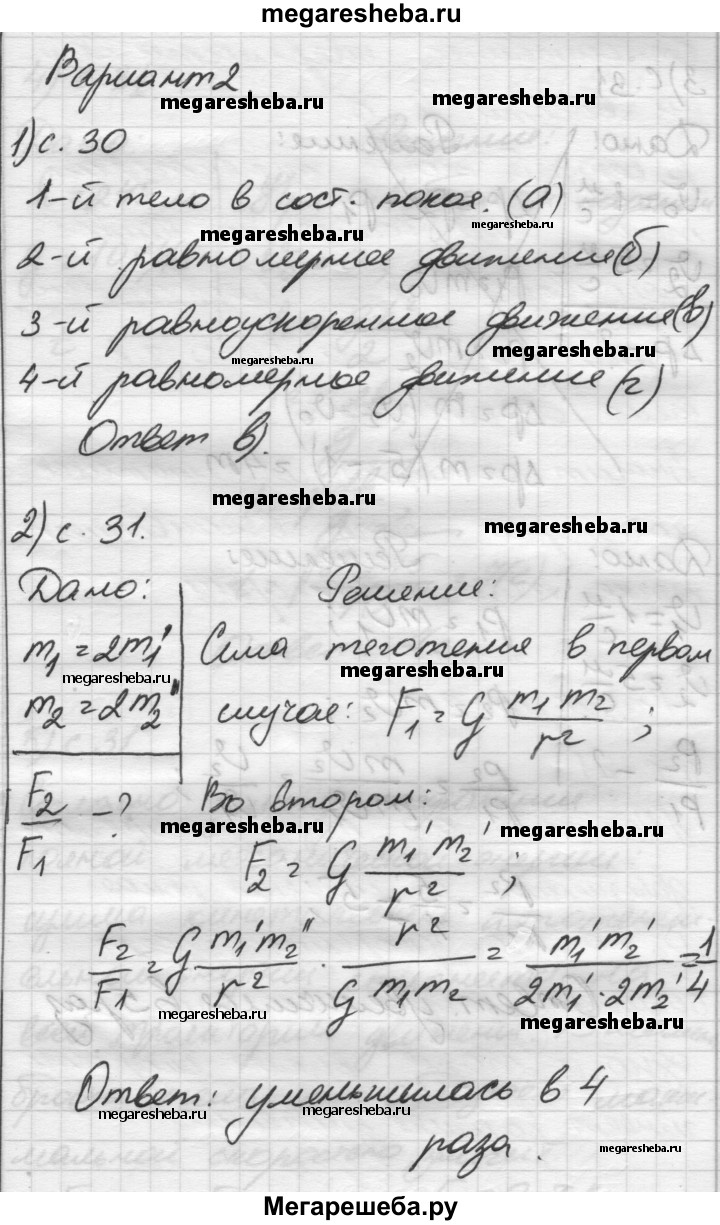 megaresheba.ru
Вариант 2
megaresheba.ru
1) с. 30
1-й тело в сост. покоя. (а)
megaresheba.ru
megaresheba.ru
2-й равномерное движение (б)
3-й равноускоренное движение (в)
megaresheba.ru
megaresheba.ru
4-й равномерное движение (г)
Ответ в).
megaresheba.ru
megaresheba.ru
2) с. 31.
Дано: Решение:
m₁ = 2m₁' Сила теготения в первом
megaresheba.ru
megaresheba.ru
m₂ = 2m₂'' случае: F₁ = G m₁ m₂ / r² ;
F₂ / F₁ - ? Во втором:
megaresheba.ru
megaresheba.ru
F₂ = G m₁' m₂' / r² ;
F₂ / F₁ = G m₁' m₂'' / r² · r² / G m₁ m₂ = m₁' m₂' / 2m₁' · 2m₂' = 1/4
megaresheba.ru
megaresheba.ru
Ответ: уменьшилась в 4
megaresheba.ru
megaresheba.ru
megaresheba.ru
раза.
megaresheba.ru
Мегарешеба.ру